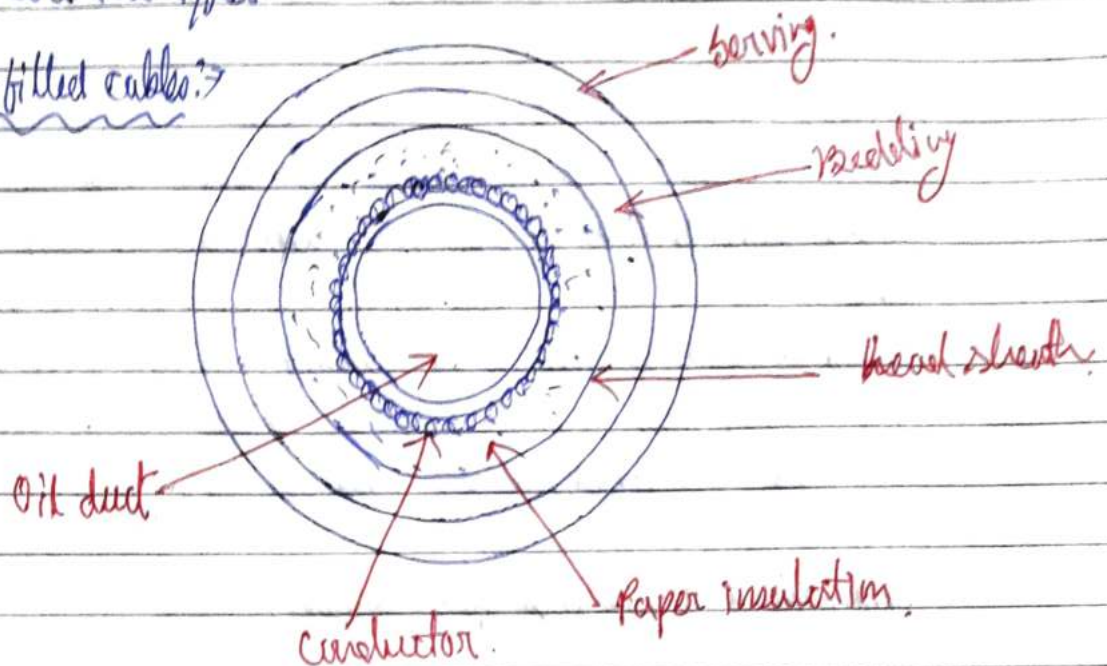 filled cables:→
Serving.
Bedding
Lead sheath.
Oil duct
Paper insulation.
Conductor.